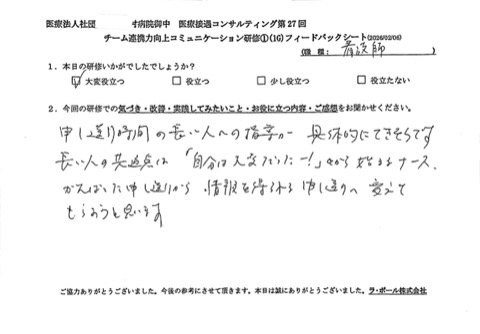 医療法人社団 村病院御中 医療接遇コンサルティング第27回
チーム連携力向上コミュニケーション研修①(1G)フィードバックシート(2026/02/06)
(職種: 看護師 )
1. 本日の研修いかがでしたでしょうか?
☑大変役立つ □役立つ □少し役立つ □役立たない
2. 今回の研修での気づき・改善・実践してみたいこと・お役に立つ内容・ご感想をお聞かせください。
申し送り時間の長い人への指導が 具体的にできそうです
長い人の共通点は「自分は大変だったー!」から始まるナース、
がんばった申し送りから 情報を得られる 申し送りへ 変えて
もらおうと思います
ご協力ありがとうございました。今後の参考にさせて頂きます。本日は誠にありがとうございました。ラ・ポール株式会社